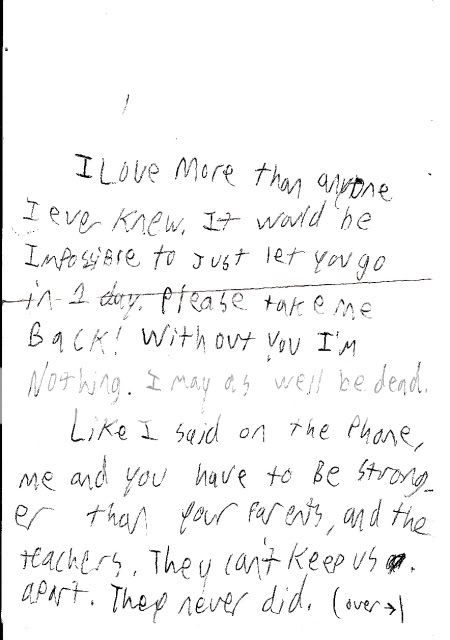 I Love More than anyone
I ever Knew. It would be
Impossible to Just let you go
in 1 day. Please take me
Back! Without You I'm
Nothing. I may as well be dead.
Like I said on the Phone,
me and you have to Be strong-
er than your Parents, and the
teachers. They can't Keep us
apart. They never did. (over→)